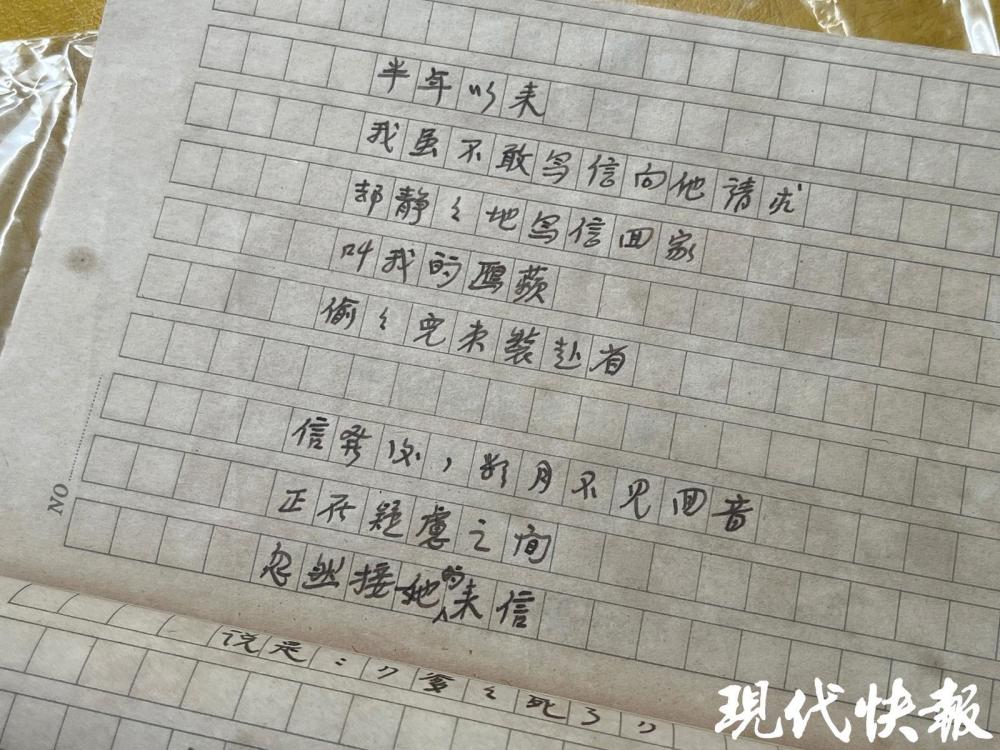 半年以来
我虽不敢写信向他请求
却静々地写信回家
叫我的鴎蘋
偷々儿来装赴省
信发后，影月不见回音
正在疑虑之间
忽然接她的来信
NO
说是：“爹々死了”
现代快报